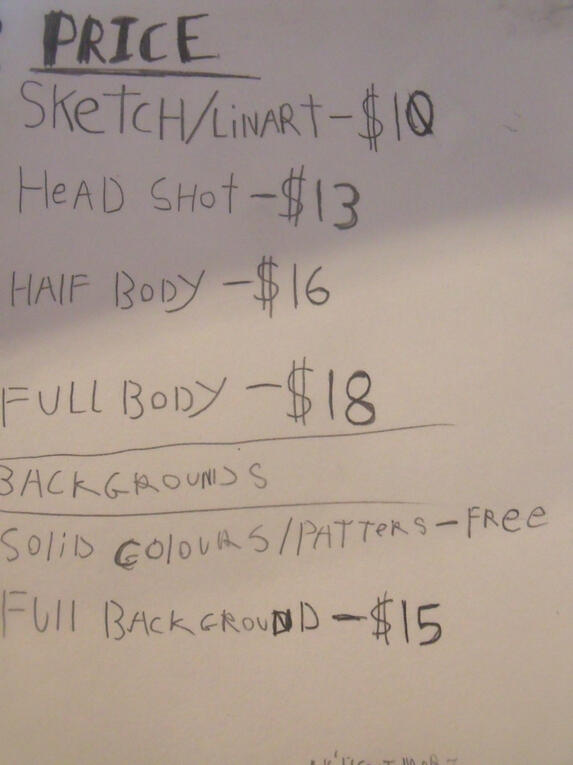 PRICE
SKetCH/LiNARt-$10
HeAD SHot-$13
HAlF BODY-$16
FUll BODY-$18
BACKGROUNDS
SOliD COlOURS/PATTeRS-FRee
FUll BACKGROUND-$15